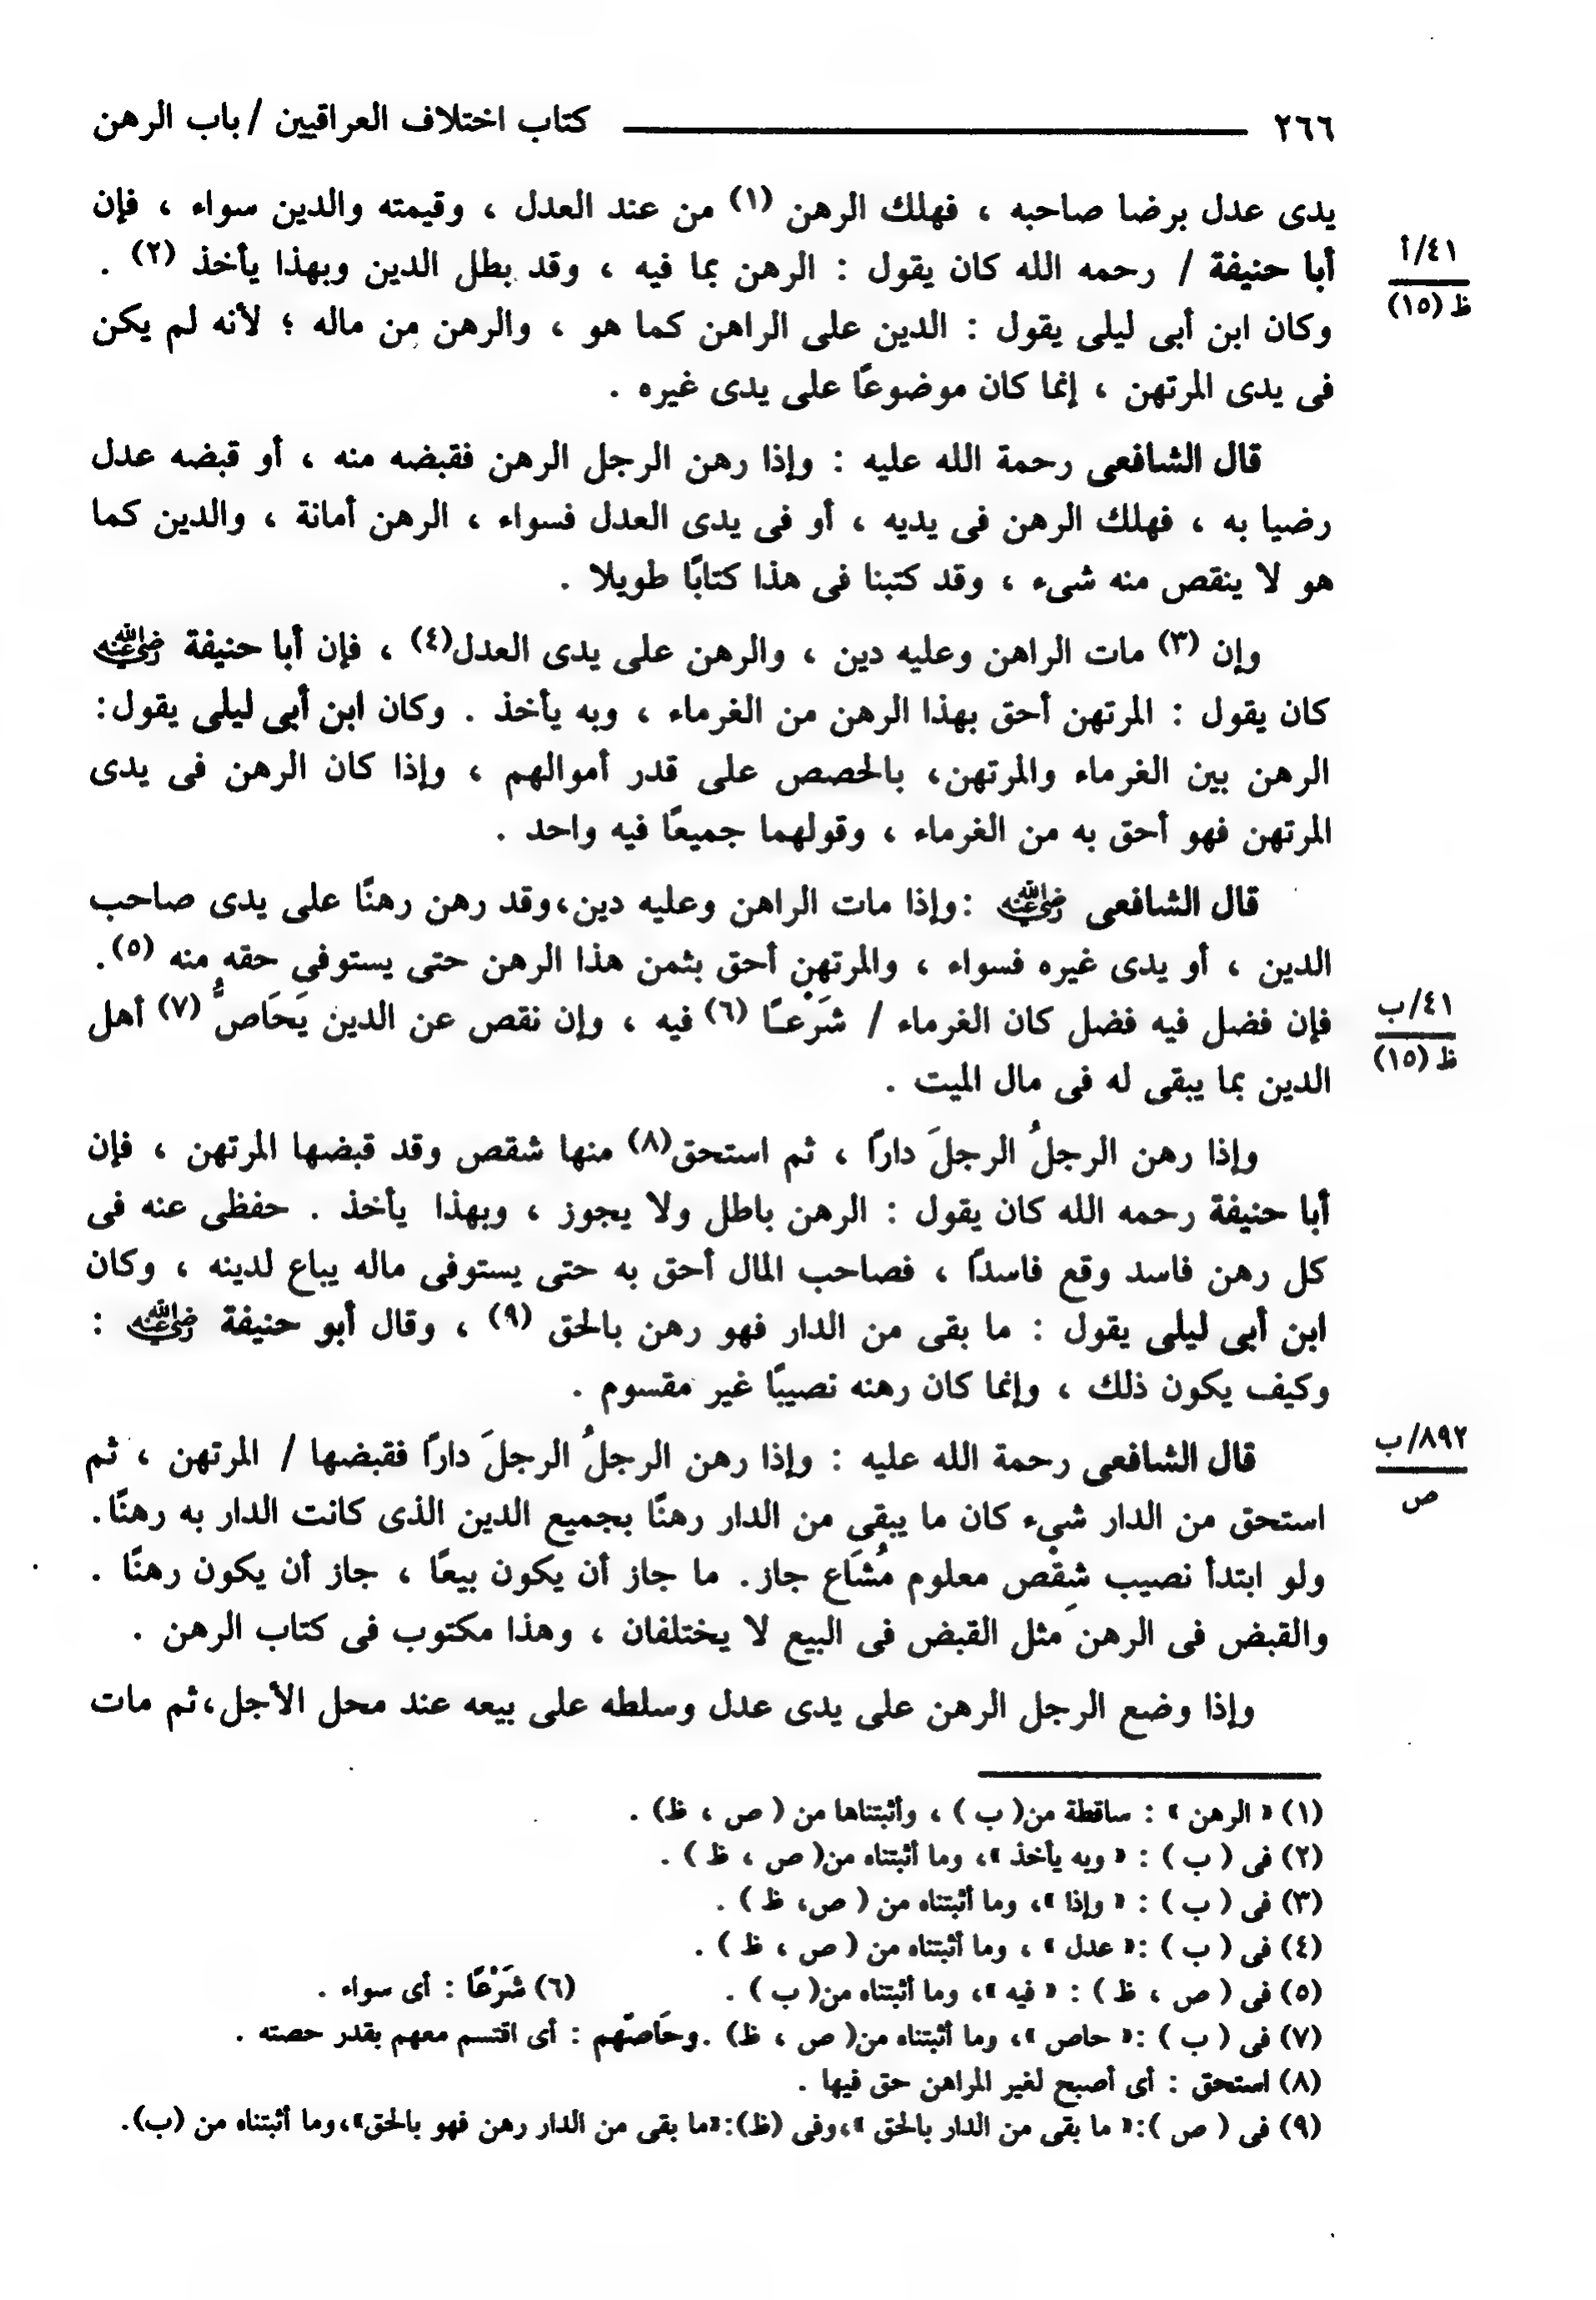 ٢٦٦ كتاب اختلاف العراقيين / باب الرهن
يدى عدل برضا صاحبه ، فهلك الرهن (١) من عند العدل ، وقيمته والدين سواء ، فإن
أبا حنيفة / رحمه الله كان يقول : الرهن بما فيه ، وقد بطل الدين وبهذا يأخذ (٢) .
٤١/أ
ظ (١٥)
وكان ابن أبى ليلى يقول : الدين على الراهن كما هو ، والرهن من ماله ؛ لأنه لم يكن
فى يدى المرتهن ، إنما كان موضوعًا على يدى غيره .
قال الشافعى رحمة الله عليه : وإذا رهن الرجل الرهن فقبضه منه ، أو قبضه عدل
رضيا به ، فهلك الرهن فى يديه ، أو فى يدى العدل فسواء ، الرهن أمانة ، والدين كما
هو لا ينقص منه شىء ، وقد كتبنا فى هذا كتابًا طويلا .
وإن (٣) مات الراهن وعليه دين ، والرهن على يدى العدل(٤) ، فإن أبا حنيفة رضي الله عنه
كان يقول : المرتهن أحق بهذا الرهن من الغرماء ، وبه يأخذ . وكان ابن أبى ليلى يقول:
الرهن بين الغرماء والمرتهن، بالحصص على قدر أموالهم ، وإذا كان الرهن فى يدى
المرتهن فهو أحق به من الغرماء ، وقولهما جميعًا فيه واحد .
قال الشافعى رضي الله عنه :وإذا مات الراهن وعليه دين،وقد رهن رهنًا على يدى صاحب
الدين ، أو يدى غيره فسواء ، والمرتهن أحق بثمن هذا الرهن حتى يستوفى حقه منه (٥).
فإن فضل فيه فضل كان الغرماء / شَرْعًا (٦) فيه ، وإن نقص عن الدين يَحَاصُّ (٧) أهل
٤١/ب
ظ (١٥)
الدين بما يبقى له فى مال الميت .
وإذا رهن الرجلُ الرجلَ دارًا ، ثم استحق(٨) منها شقص وقد قبضها المرتهن ، فإن
أبا حنيفة رحمه الله كان يقول : الرهن باطل ولا يجوز ، وبهذا يأخذ . حفظى عنه فى
كل رهن فاسد وقع فاسدًا ، فصاحب المال أحق به حتى يستوفى ماله يباع لدينه ، وكان
ابن أبى ليلى يقول : ما بقى من الدار فهو رهن بالحق (٩) ، وقال أبو حنيفة رضي الله عنه :
وكيف يكون ذلك ، وإنما كان رهنه نصيبًا غير مقسوم .
قال الشافعى رحمة الله عليه : وإذا رهن الرجلُ الرجلَ دارًا فقبضها / المرتهن ، ثم
٨٩٢/ب
ص
استحق من الدار شىء كان ما يبقى من الدار رهنًا بجميع الدين الذى كانت الدار به رهنًا.
ولو ابتدأ نصيب شِقْص معلوم مُشَاع جاز. ما جاز أن يكون بيعًا ، جاز أن يكون رهنًا .
والقبض فى الرهن مثل القبض فى البيع لا يختلفان ، وهذا مكتوب فى كتاب الرهن .
وإذا وضع الرجل الرهن على يدى عدل وسلطه على بيعه عند محل الأجل،ثم مات
(١) « الرهن » : ساقطة من( ب ) ، وأثبتناها من ( ص ، ظ) .
(٢) فى ( ب ) : « وبه يأخذ »، وما أثبتناه من( ص ، ظ ) .
(٣) فى ( ب ) : « وإذا »، وما أثبتناه من ( ص، ظ ) .
(٤) فى ( ب ) :« عدل » ، وما أثبتناه من ( ص ، ظ ) .
(٥) فى ( ص ، ظ ) : « فيه »، وما أثبتناه من( ب ) . (٦) شَرْعًا : أى سواء .
(٧) فى ( ب ) :« حاص »، وما أثبتناه من( ص ، ظ) .وحَاصّهم : أى اقتسم معهم بقدر حصته .
(٨) استحق : أى أصبح لغير المراهن حق فيها .
(٩) فى ( ص ):« ما بقى من الدار بالحق »،وفى (ظ):«ما بقى من الدار رهن فهو بالحق»،وما أثبتناه من (ب).